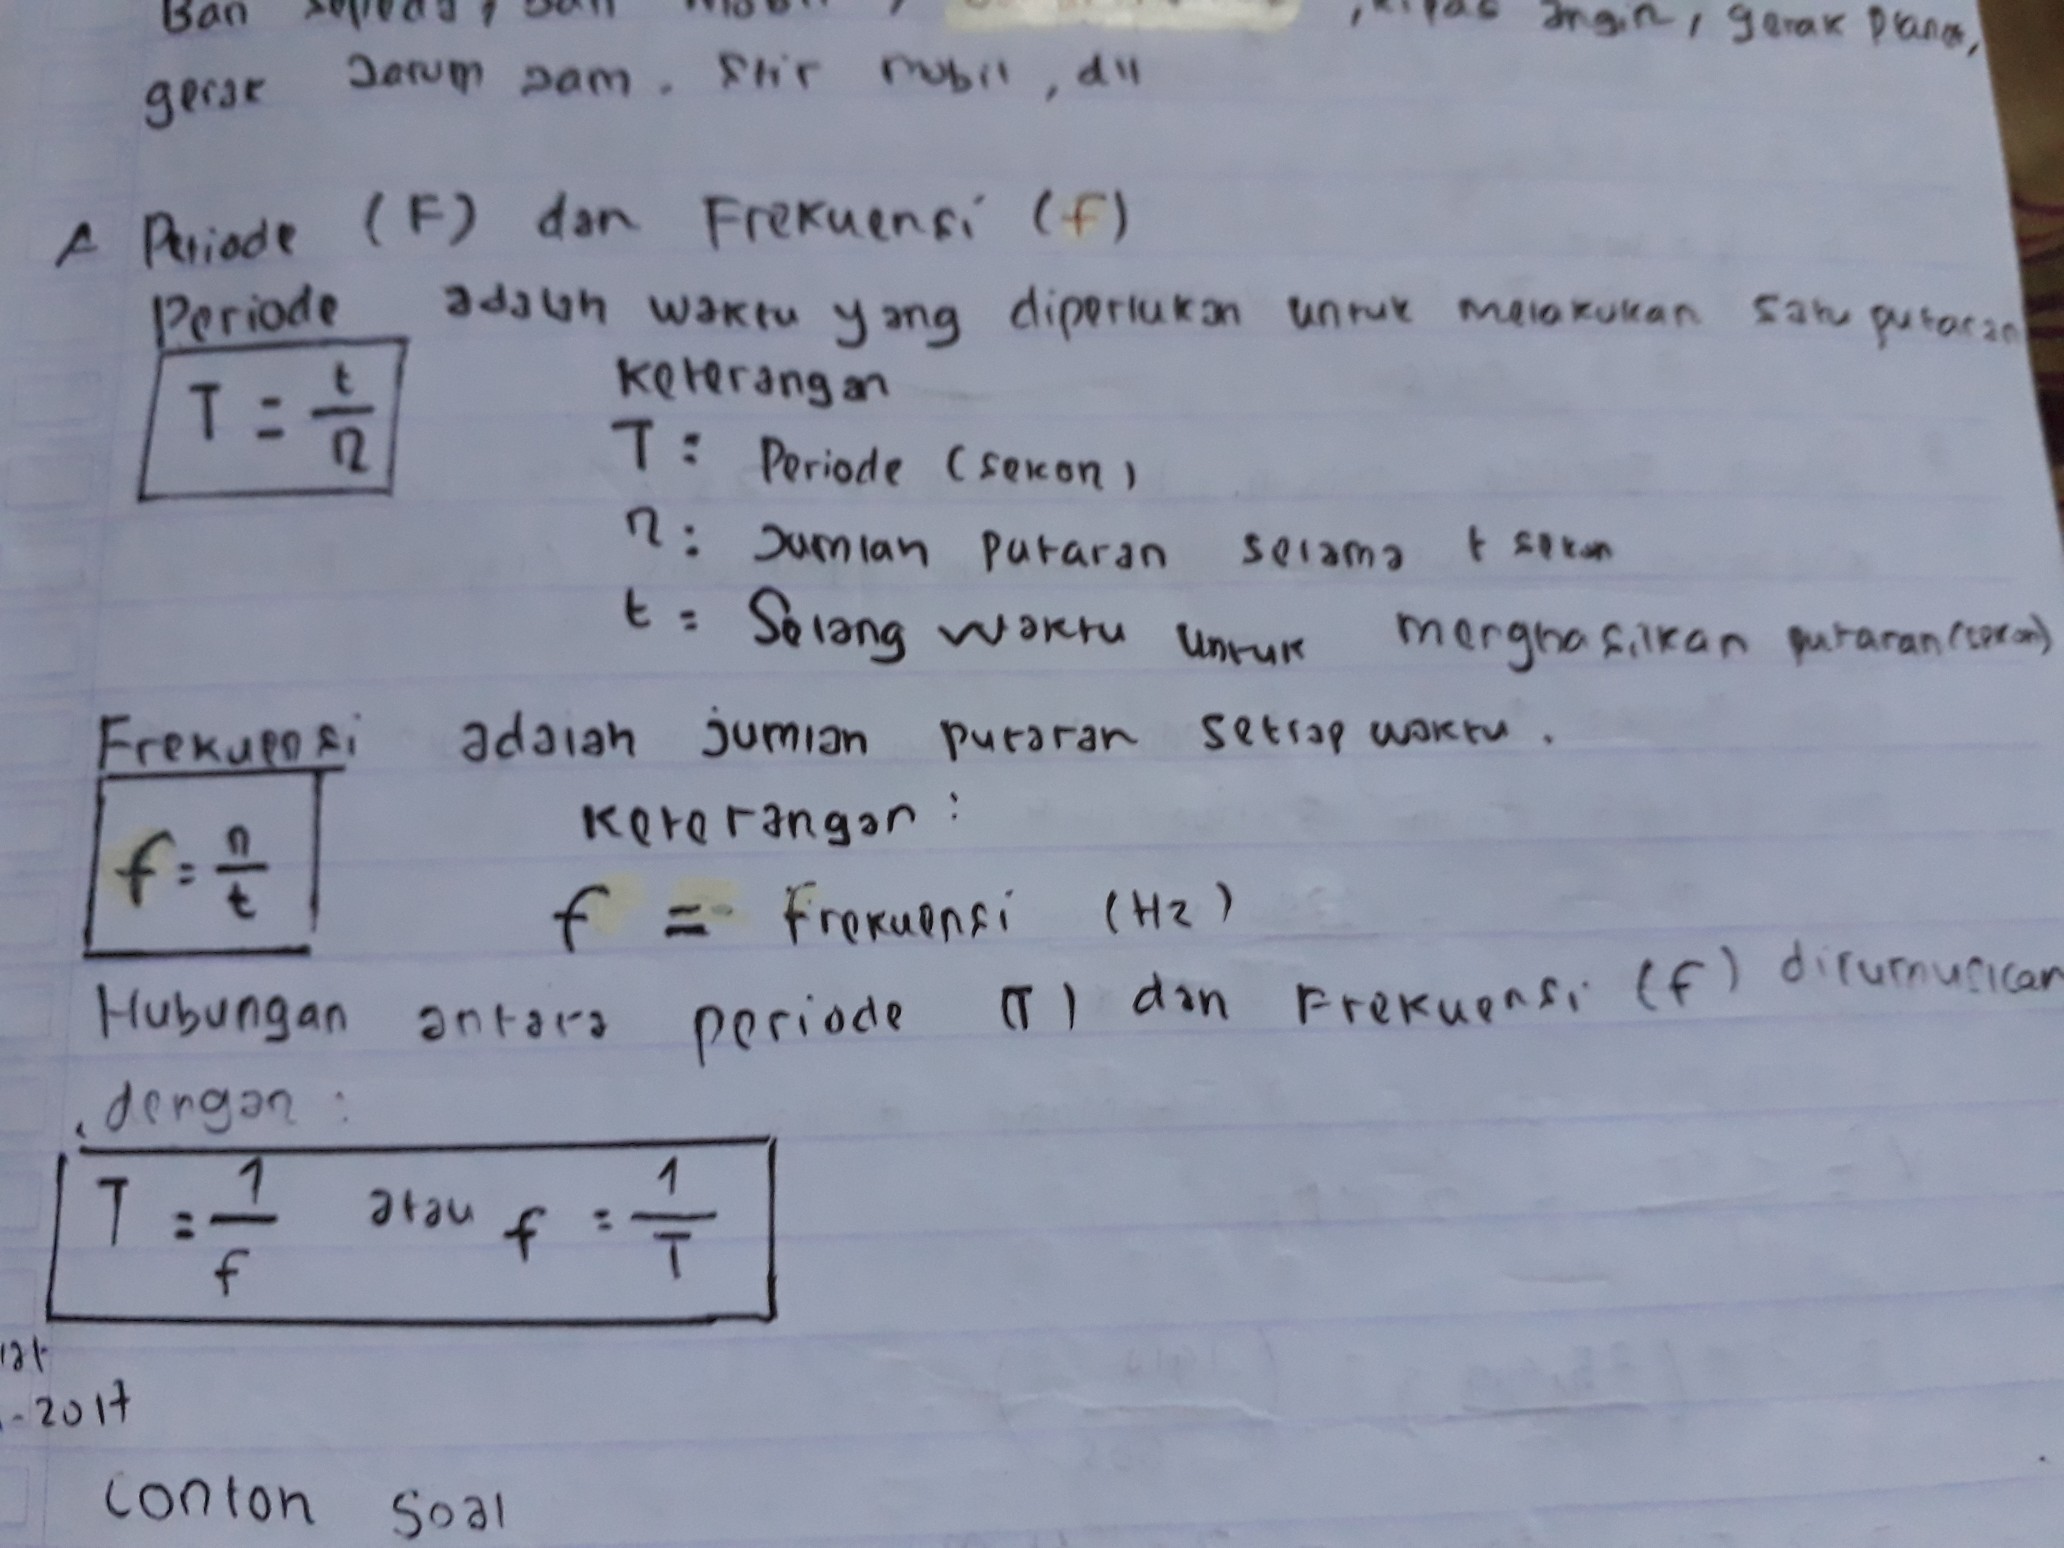 Ban sepeda, ban mobil, , kipas angin, gerak planet,
gerak Jarum Jam. Stir mobil, dll
A Periode (F) dan Frekuensi (f)
Periode adalah waktu yang diperlukan untuk melakukan satu putaran
Keterangan
T = t/n
T = Periode (sekon)
n = Jumlah putaran selama t sekon
t = Selang waktu untuk menghasilkan putaran (sekon)
Frekuensi adalah jumlah putaran setiap waktu.
Keterangan :
f = n/t
f = Frekuensi (Hz)
Hubungan antara periode (T) dan Frekuensi (f) dirumuskan
dengan :
T = 1/f atau f = 1/T
-2017
Contoh Soal